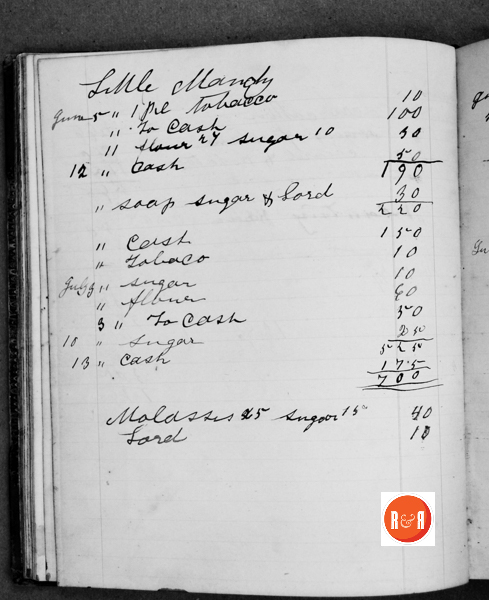 Little Mandy
June 5 " 1 pc tobacco 10
" To Cash 100
" flour 24 sugar 10 30
12 " Cash 50
190
" soap sugar & lord 30
220
" Cash 150
" Tobaco 10
July 3 " sugar 10
" flour 60
3 " To Cash 50
10 " sugar 2 50
5 2 5
13 " Cash 175
700
Molasses 25 sugar 15 40
Lord 10
R&R